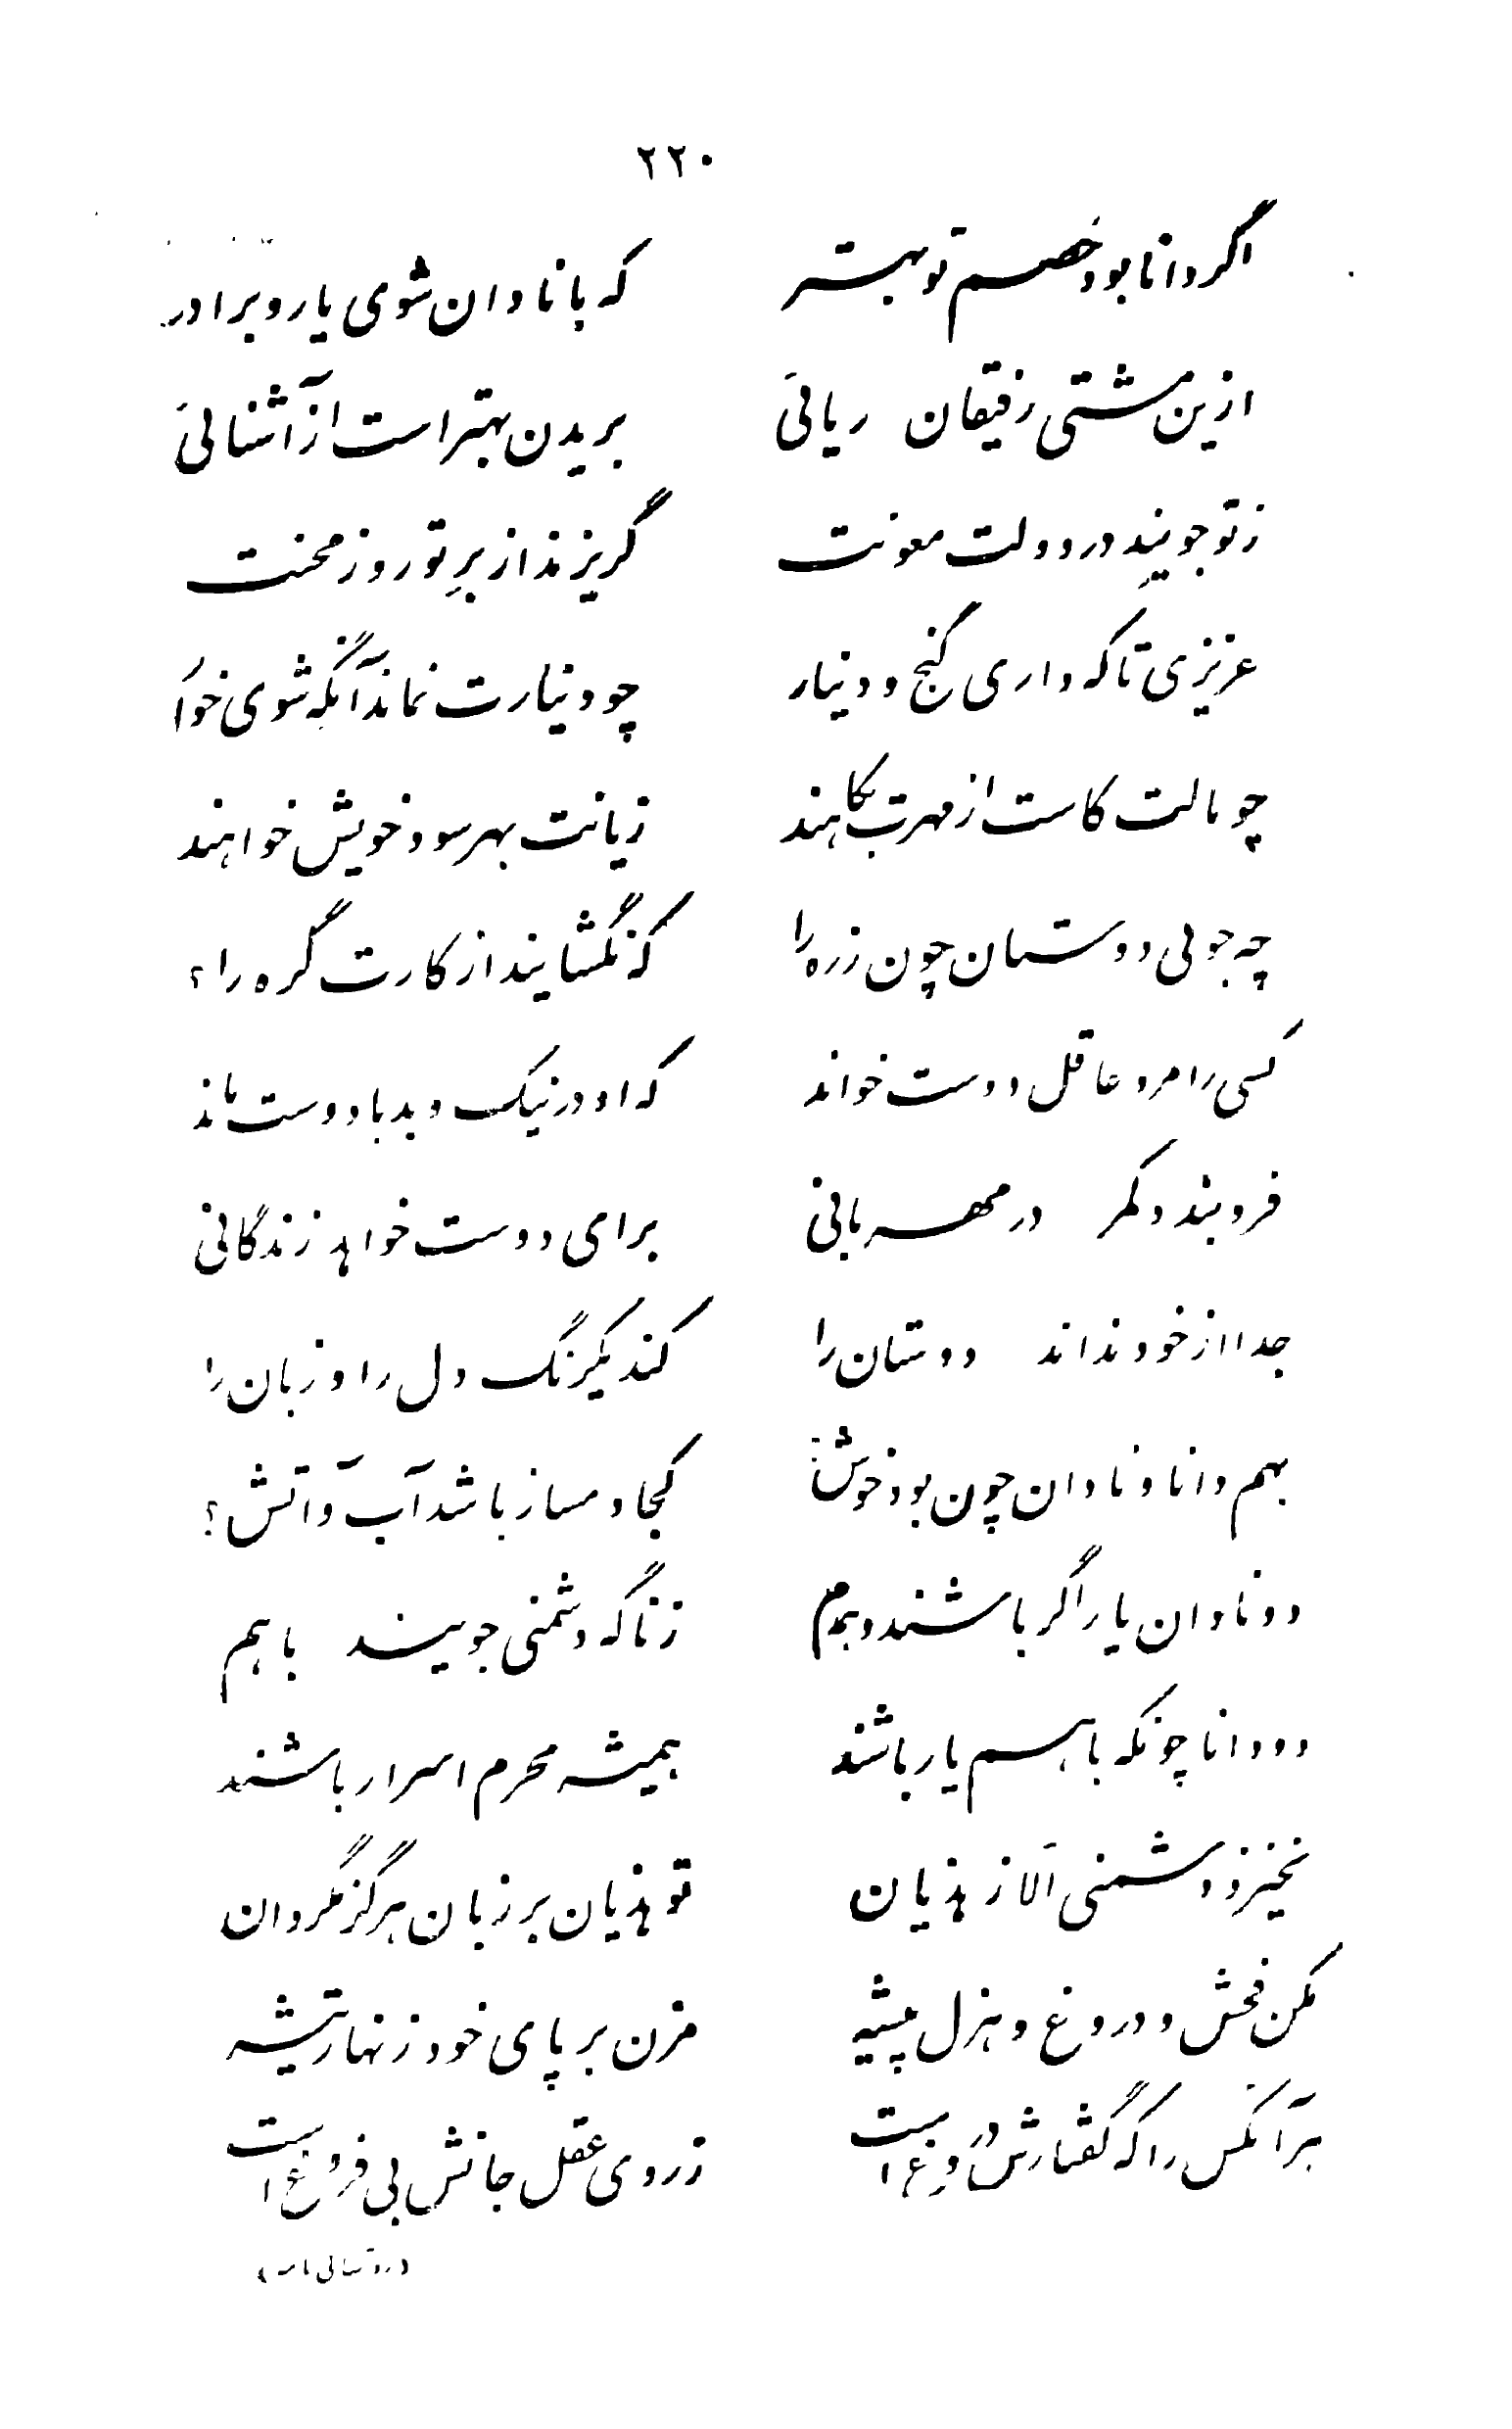 ۲۲۰
اگر دانا بود خصم تو بهتر که با نادان شوی یار و برادر
ازین مشتی رفیقان ریائی بریدن بهتر است از آشنائی
ز تو جویند در دولت معونت گریزند از برِ تو روز محنت
عزیزی تا که داری گنج و دینار چو دینارت نماند آنگه شوی خوار
چو مالت کاست از مهرت بکاهند زیانت بهر سود خویش خواهند
چه جوئی دوستان چون زره را که نگشایند از کارت گره را؟
کسی را مرد عاقل دوست خواند که او در نیک و بد با دوست ماند
فرو بندد کمر در مهربانی برای دوست خواهد زندگانی
جدا از خود نداند دوستان را کند یکرنگ دل را و زبان را
بهم دانا و نادان چون بود خوش؟ کجا دمساز باشد آب و آتش؟
دو نادان یار اگر باشند و همدم ز ناگه دشمنی جویند باهم
دو دانا چونکه باهم یار باشند همیشه محرم اسرار باشند
نخیزد دشمنی الّا ز هذیان تو هذیان بر زبان هرگز مگردان
مکن فحش و دروغ و هزل پیشه مزن بر پای خود زنهار تیشه
هر آنکس را که گفتارش دروغ است ز روی عقل جانش بی فروغ است